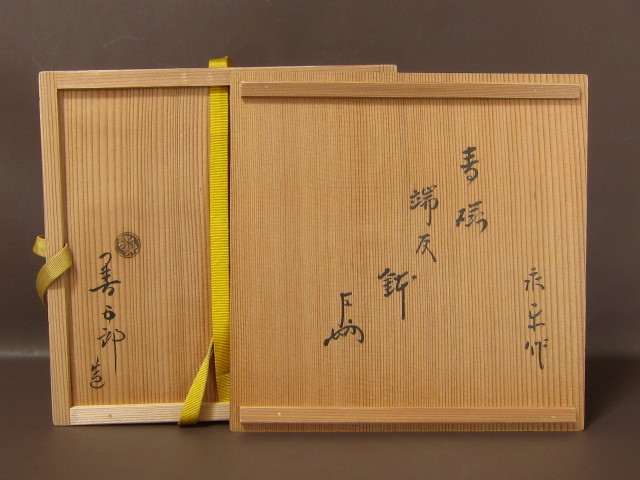 永平作
青磁
端反
鉢
善五郎
造